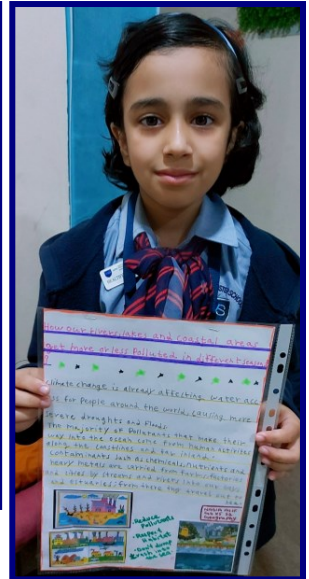 How our rivers, lakes and coastal areas
get more or less Polluted in different
?
climate change is already affecting water acc
for People around the world, causing more
severe droughts and floods.
The majority of Pollutants that make their
way into the ocean come from human activities
along the coastlines and far inland.
Contaminants such as chemicals, nutrients and
heavy metals are carried from farms, factories
and cities by streams and rivers into our bays
and estuaries from there they travel out to
-Reduce
Pollutants
-Respect
Habitat
-Don't dump
trash into
the sea
S